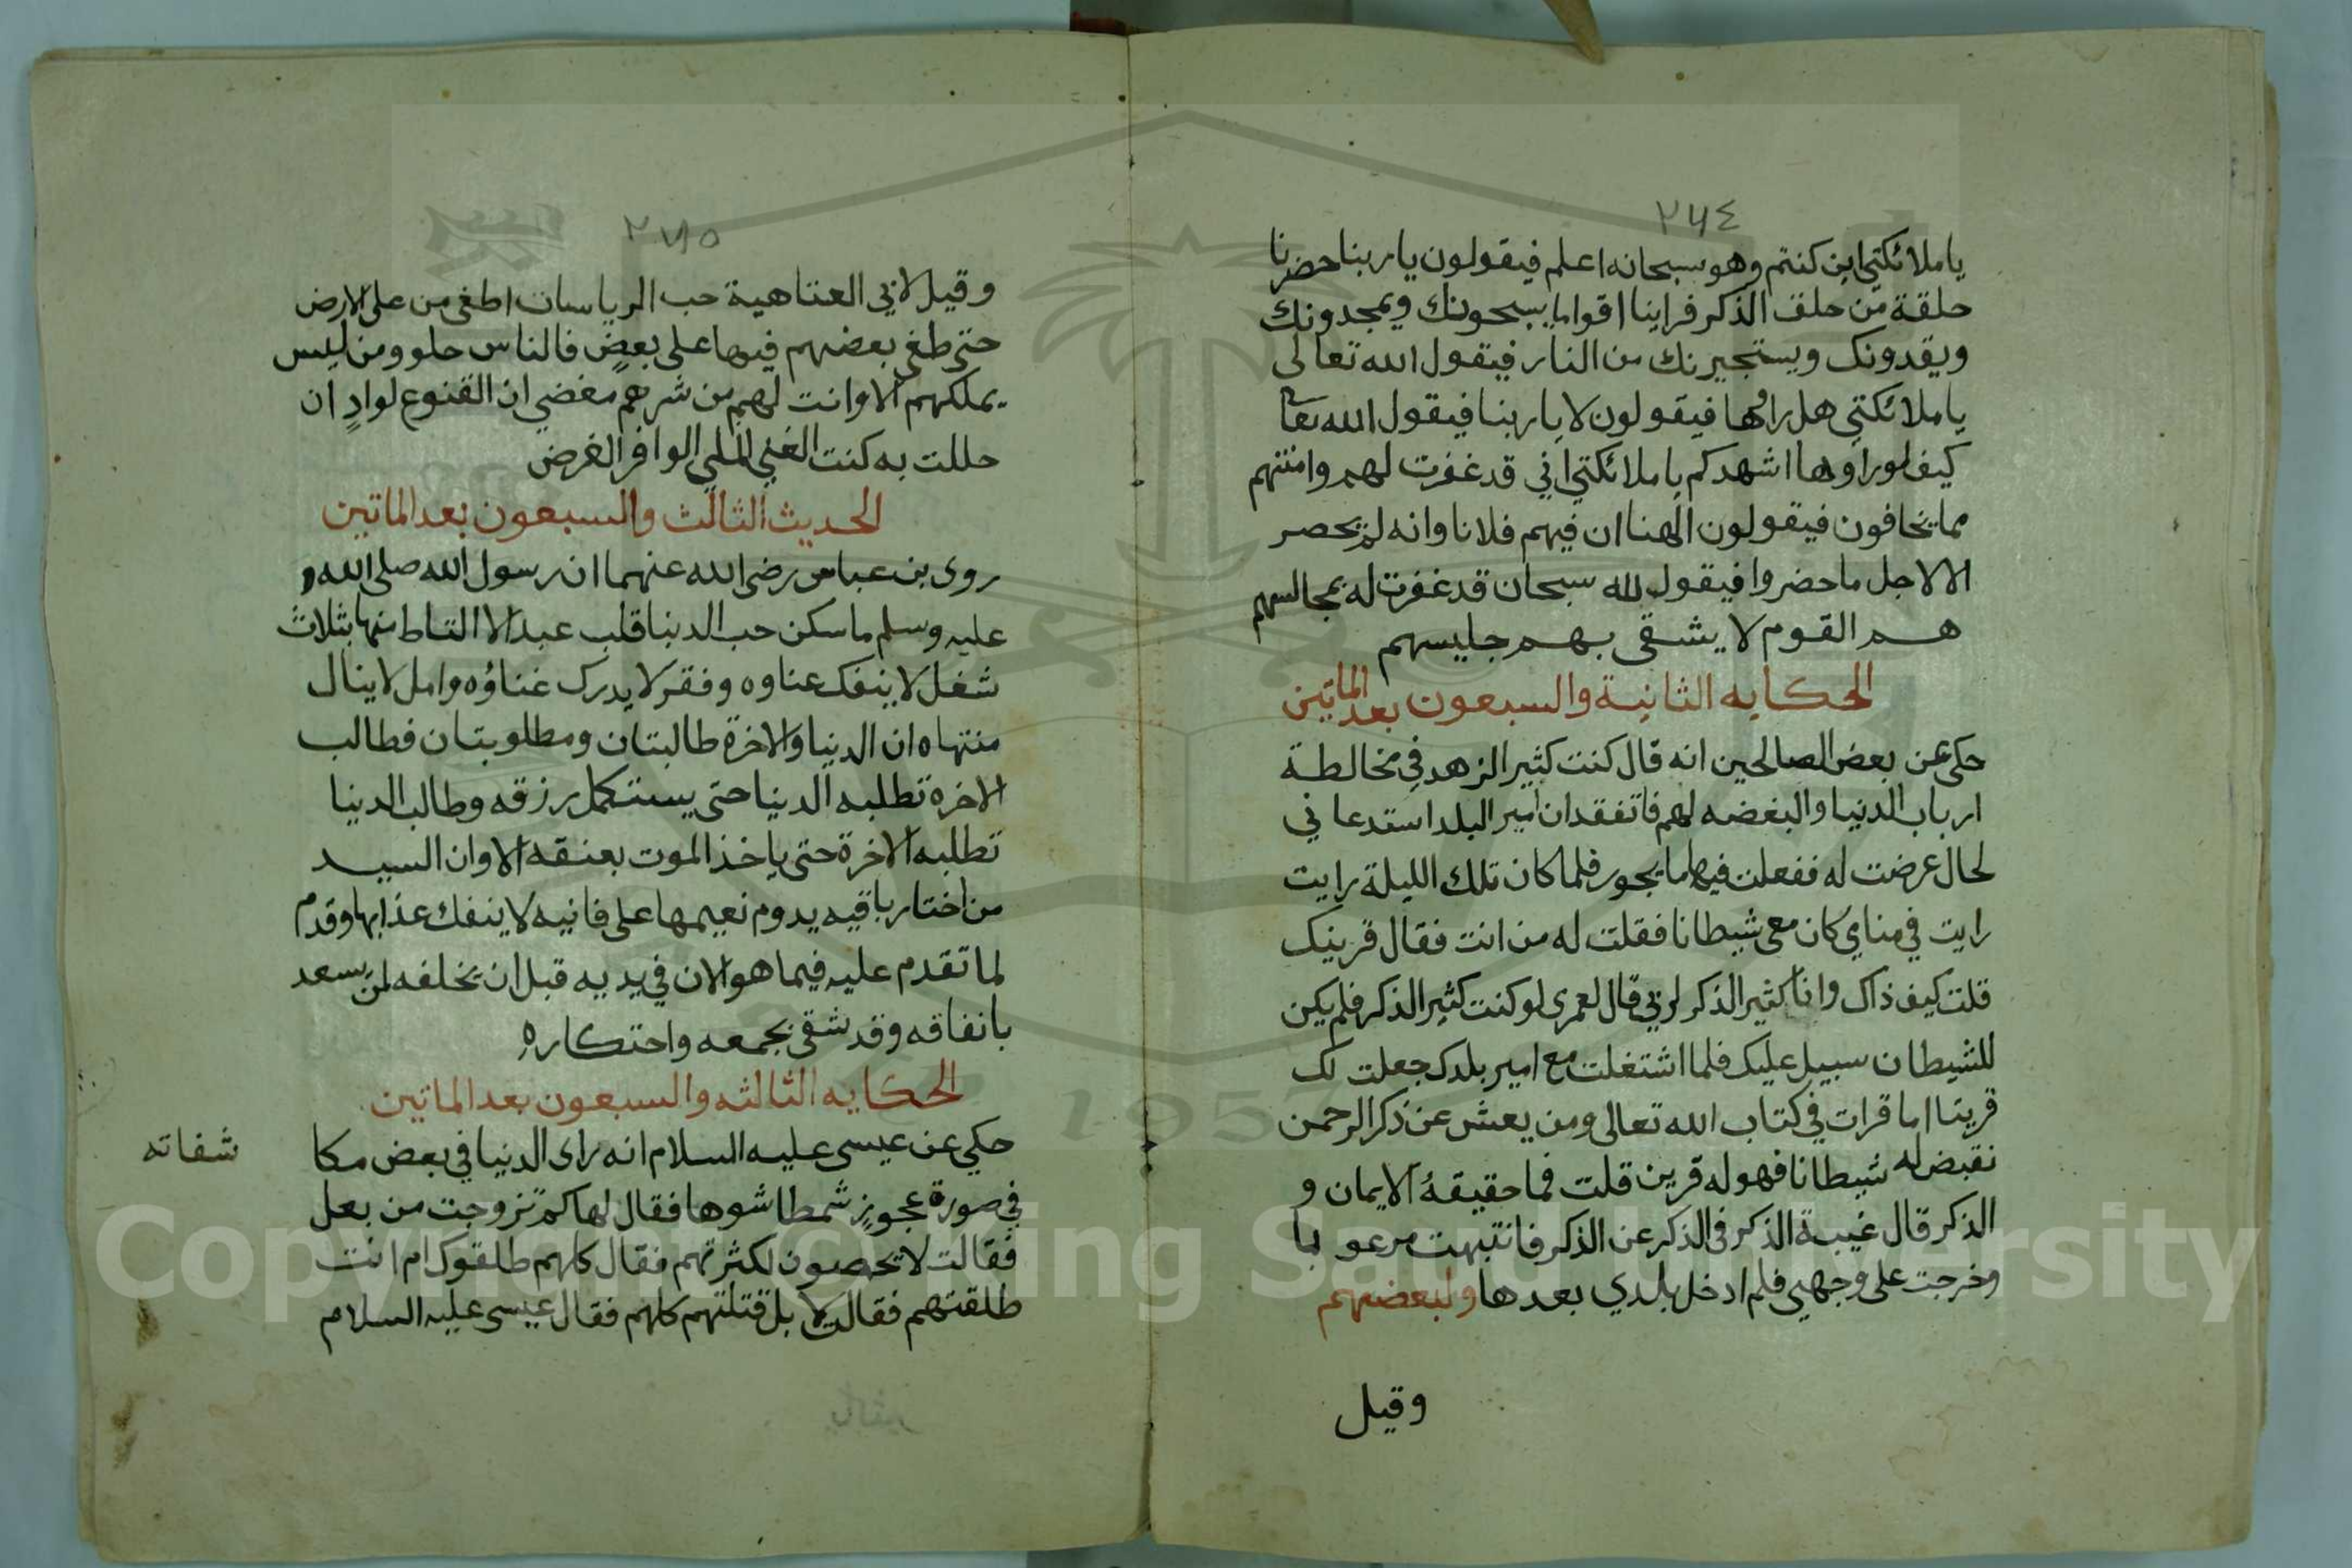 ٢٧٤
يا ملائكتي اين كنتم وهو سبحانه اعلم فيقولون يا ربنا حضرنا
حلقة من حلق الذكر فراينا اقواما يسبحونك ويمجدونك
ويقدونك ويستجيرنك من النار فيقول الله تعالى
يا ملائكتي هل راوها فيقولون لا يا ربنا فيقول الله تعا
كيف لوراوها اشهدكم يا ملائكتي اني قد غفرت لهم وامنتهم
مما يخافون فيقولون الهنا ان فيهم فلانا وانه لم يحصر
الا لاجل ما حضروا فيقول الله سبحان قد غفرت له بمجالسهم
هم القوم لا يشقى بهم جليسهم
الحكايه الثانية والسبعون بعد الماتين
حكى عن بعض الصالحين انه قال كنت كثير الزهد في مخالطة
ارباب الدنيا والبغضه لهم فاتفقد ان امير البلد استدعاني
لحال عرضت له ففعلت فيها ما يجور فلما كان تلك الليلة رايت
رايت في منامي كان معي شيطانا فقلت له من انت فقال قرينك
قلت كيف ذاك وانا كثير الذكر لربي قال لعمرى لو كنت كثير الذكر فلم يكن
للشيطان سبيل عليك فلما اشتغلت مع امير بلدك جعلت لك
قرينا اما قرات في كتاب الله تعالى ومن يعش عن ذكر الرحمن
نقيض له شيطانا فهو له قرين قلت فما حقيقة الايمان و
الذكر قال غيبة الذكر في الذكر عن الذكر فانتبهت مرعوبا
وخرجت على وجهي فلم ادخل بلدي بعدها ولبعضهم
وقيل
٢٧٥
وقيل لابي العتاهية حب الرياسات اطغى من على الارض
حتى طغى بعضهم فيها على بعضٍ فالناس حلو ومن ليس
يملكهم الا وانت لهم من شرهم مغضي ان القنوع لوادٍ ان
حللت به كنت الغني الملي الوافر الغرض
الحديث الثالث والسبعون بعد الماتين
روى بن عباس رضى الله عنهما ان رسول الله صلى الله و
عليه وسلم ما سكن حب الدنيا قلب عبد الا التاط منها بثلاث
شغل لا ينفك عناوه وفقر لا يدرك غناؤه وامل لا ينال
منتهاه ان الدنيا والاخرة طالبتان ومطلوبتان فطالب
الاخره تطلبه الدنيا حتى يستكمل رزقه وطالب الدنيا
تطلبه الاخرة حتى ياخذ الموت بعنقه الا وان السيد
من اختار باقيه يدوم نعيمها على فانيه لا ينفك عذابها وقدم
لما تقدم عليه فيما هو الان في يديه قبل ان يخلفه لمن يسعد
بانفاقه وقد شقى بجمعه واحتكاره
الحكايه الثالثه والسبعون بعد الماتين
حكي عن عيسى عليه السلام انه راى الدنيا في بعض مكا
شفاته
في صورة عجوزٍ شمطا شوها فقال لها كم تزوجت من بعل
فقالت لا تحصون لكثرتهم فقال كلهم طلقوك ام انت
طلقتهم فقالت لا بل قتلتهم كلهم فقال عيسى عليه السلام
Copyright © King Saud University
1957